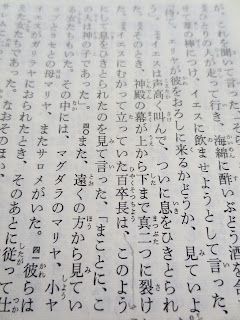 が、これを聞いて言った
って行き、海綿に酢いぶどう酒を含
の棒につけて、イエスに飲ませようとして言った、
待て、エリヤが彼をおろしに来るかどうか、見ていよ
。イエスは声高く叫んで、ついに息をひきとられ
そのとき、神殿の幕が上から下まで真二つに裂け
、イエスにむかって立っていた百卒長は、このよう
に息をひきとられたのを見て言った、「まことに、こ
は神の子であった」。四〇また、遠くの方から見てい
たちもいた。その中には、マグダラのマリヤ、小ヤ
ブとヨセとの母マリヤ、またサロメがいた。四一彼らは
エスがガリラヤにおられたとき、そのあとに従って仕
た女たちであった。なおそのほか、